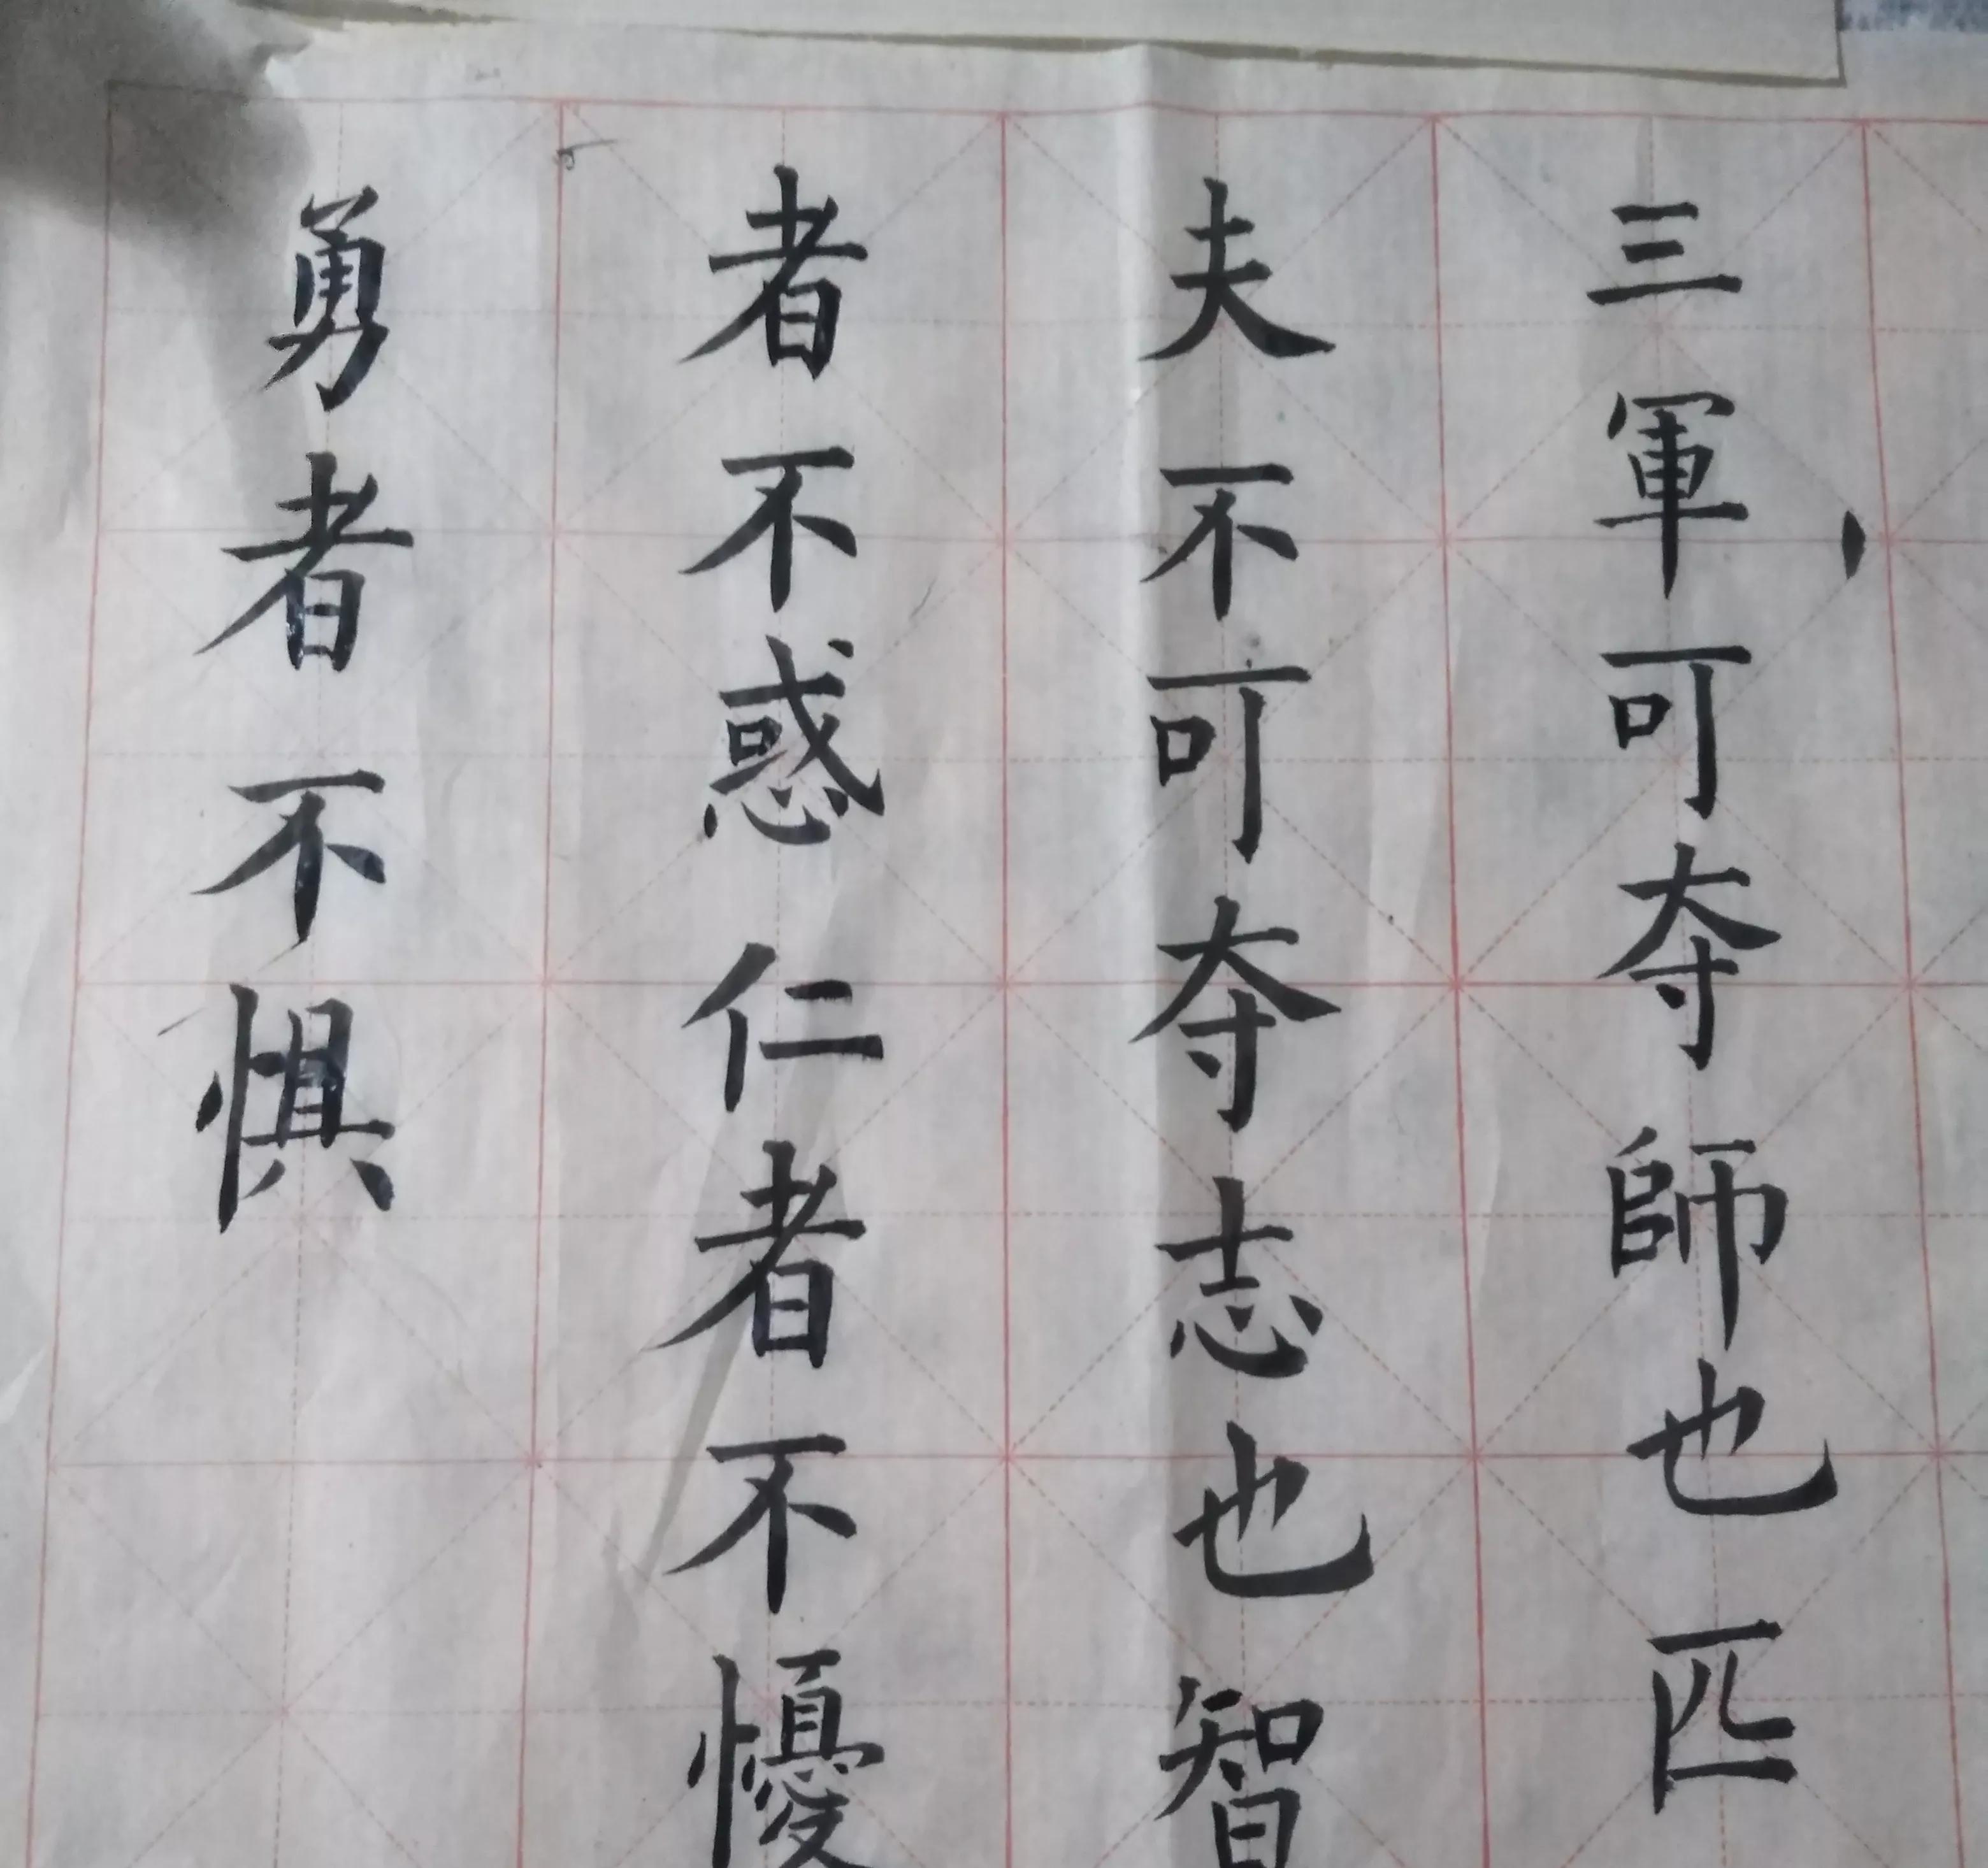 三軍可夺師也匹
夫不可夺志也智
者不惑仁者不懮
勇者不惧